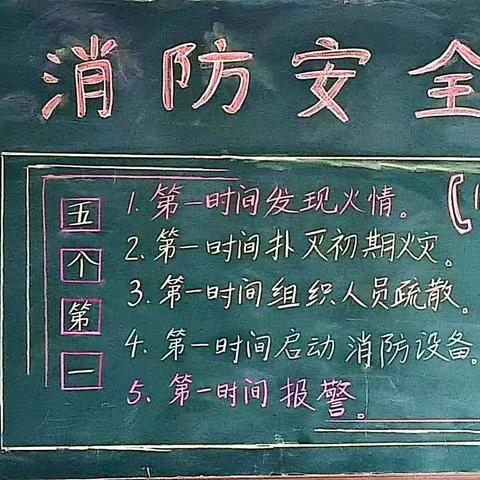 消防安全
五个第一
1. 第一时间发现火情。
2. 第一时间扑灭初期火灾。
3. 第一时间组织人员疏散。
4. 第一时间启动消防设备。
5. 第一时间报警。